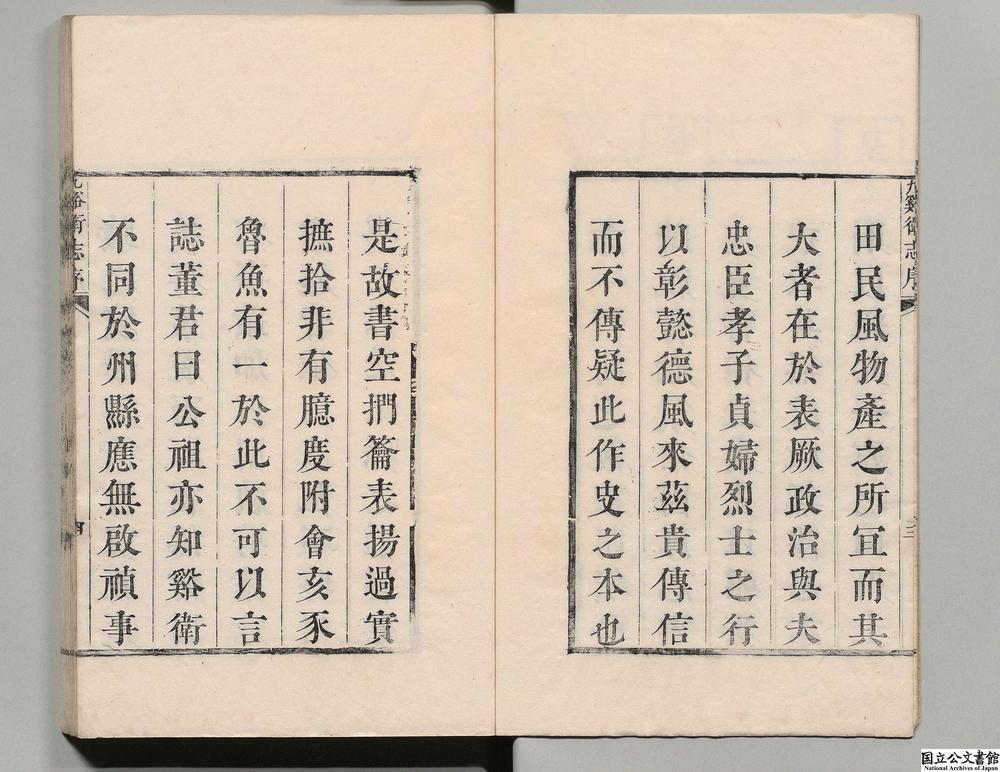 九谿衛志序
三
田民風物產之所宜而其
大者在於表厥政治與夫
忠臣孝子貞婦烈士之行
以彰懿德風來茲貴傳信
而不傳疑此作史之本也
是故書空捫籥表揚過實
摭拾非有臆度附會亥豕
魯魚有一於此不可以言
誌董君曰公祖亦知谿衛
不同於州縣應無啟禎事
九谿衛志序
四
国立公文書館
National Archives of Japan